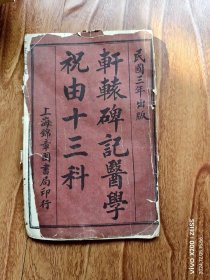 民國三年出版
軒轅碑記醫學
祝由十三科
上海錦章圖書局印行
VIVO X200 | ZEISS